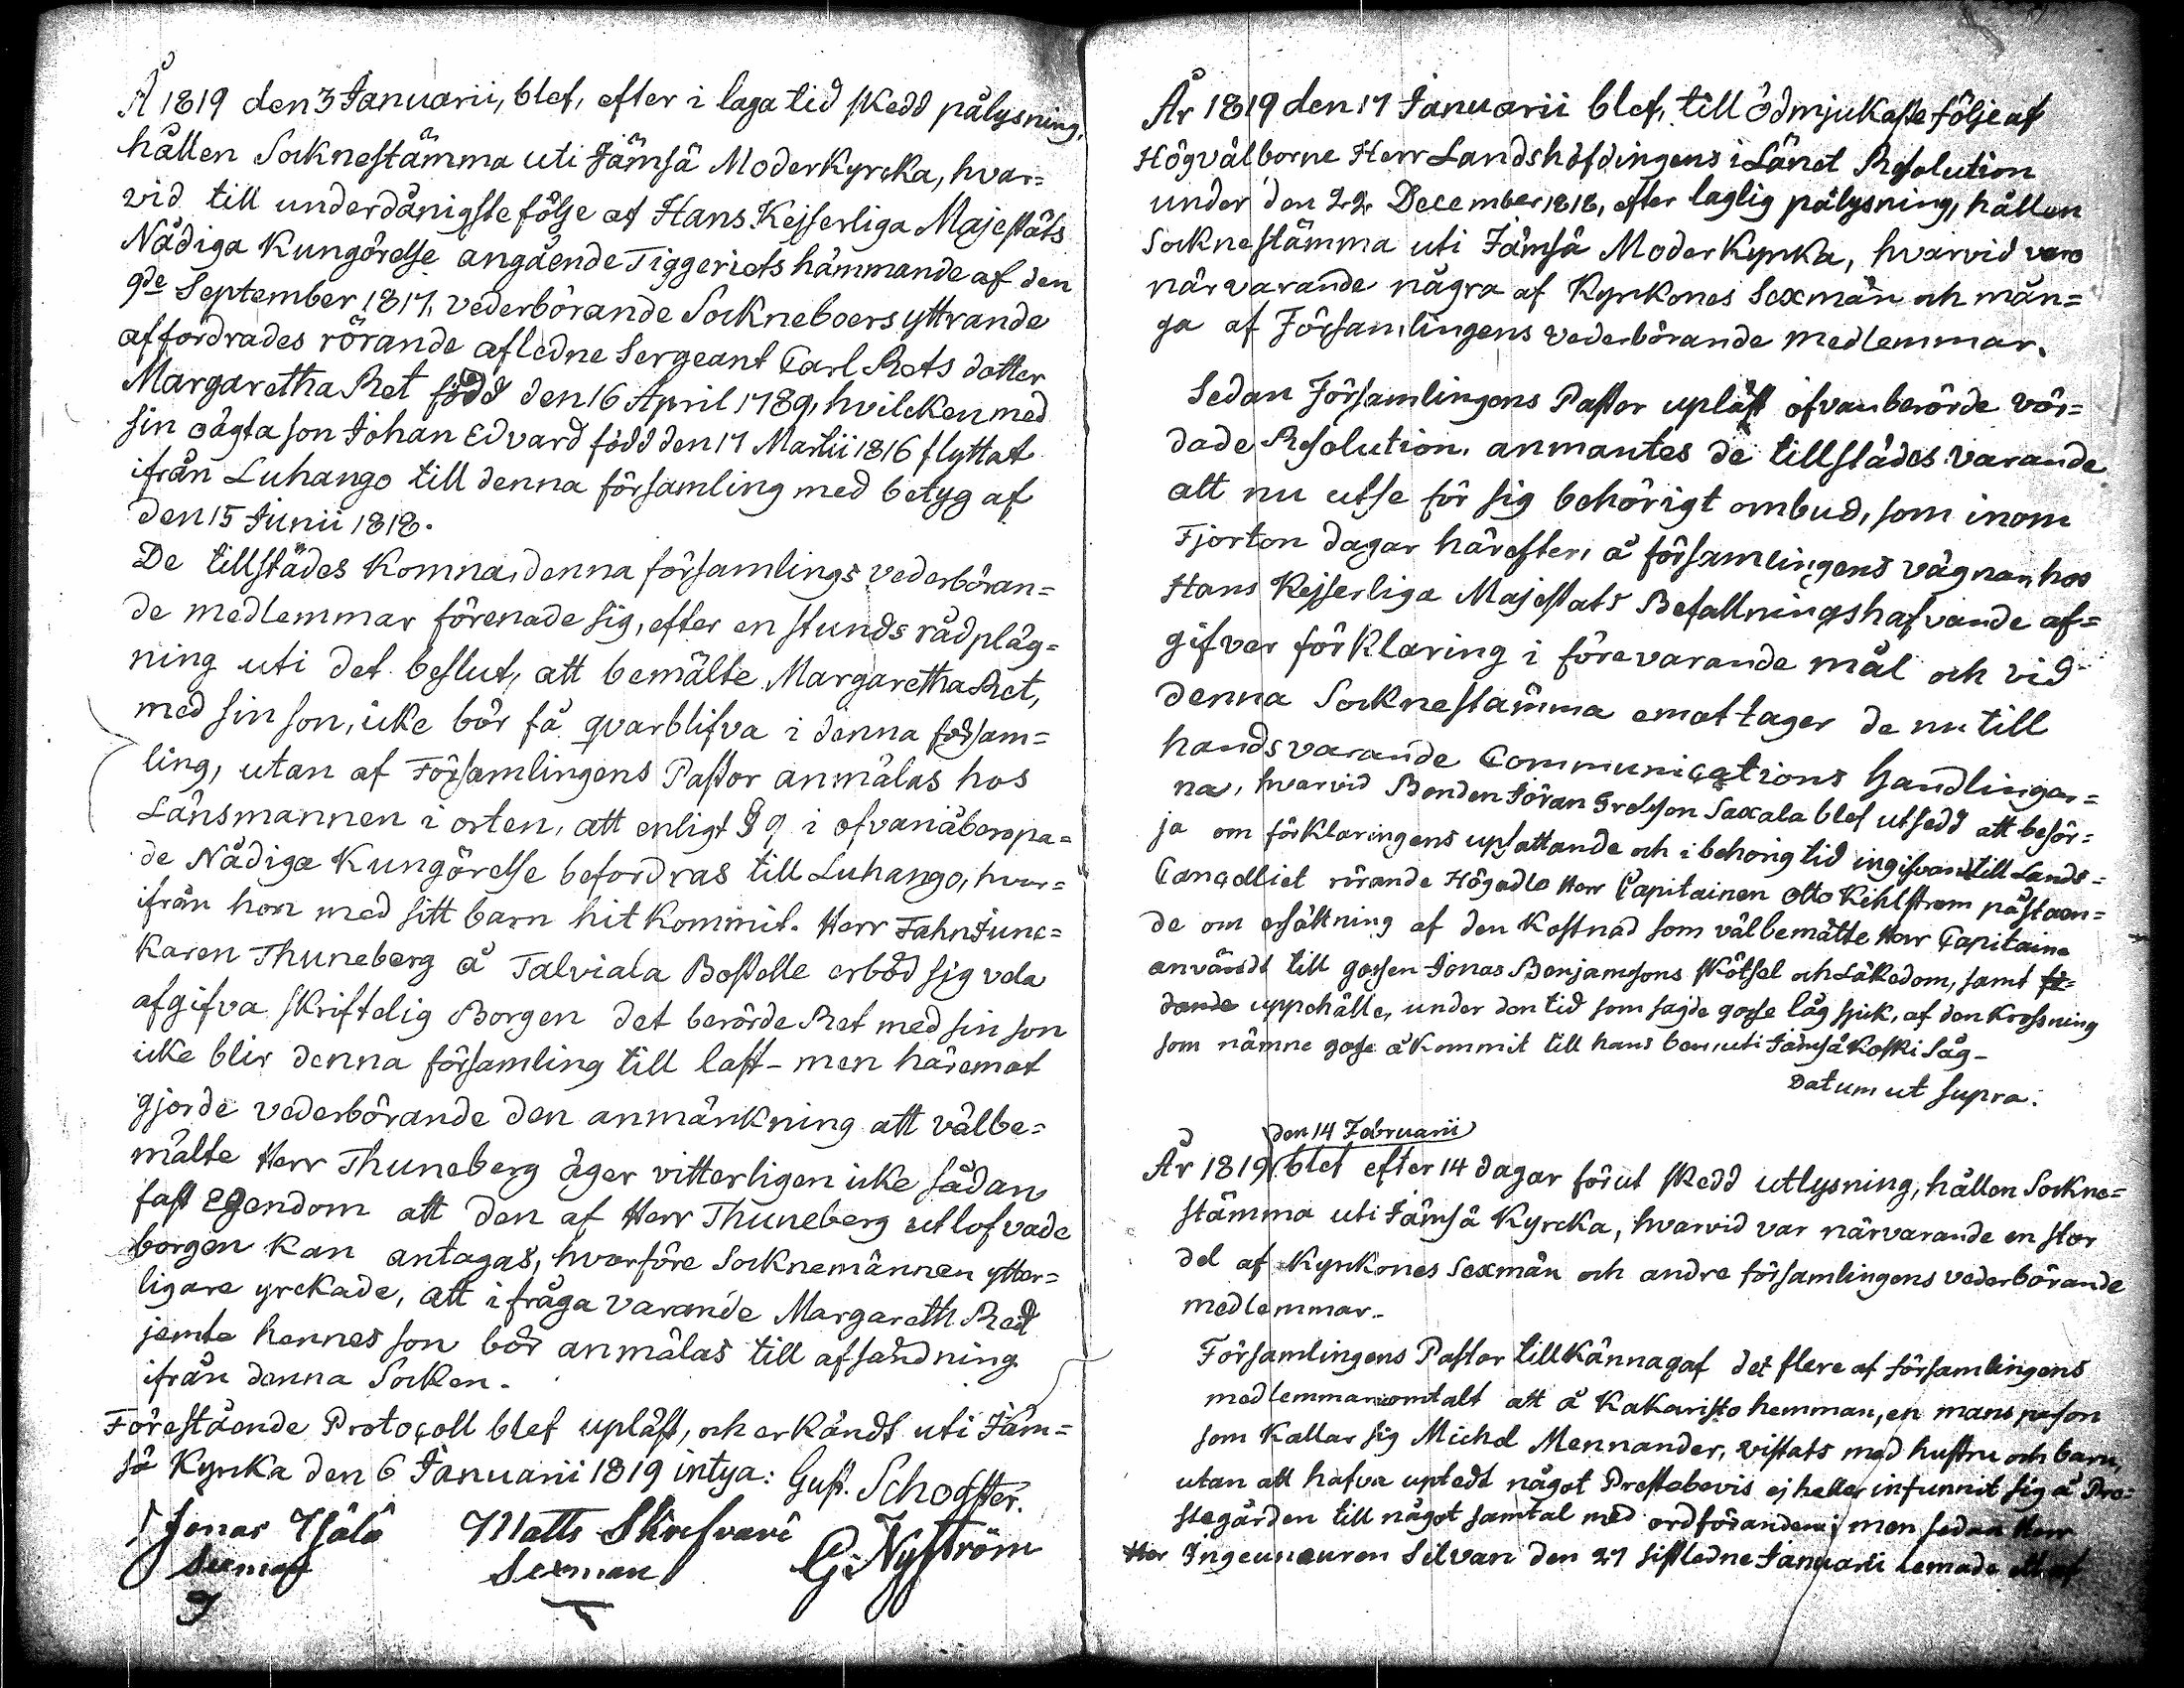 Å 1819 den 3 Januarii, blef, efter i laga tid skedd pålysning,
hållen Socknestämma uti Jämsä Moderkyrcka, hvar=
vid till underdånigste följe af Hans Kejserliga Majestäts
Nådiga Kungörelse angående Tiggeriets hämmande af den
9de September 1817, vederbörande Sockneboers yttrande
affordrades rörande afledne Sergeant Carl Rets dotter
Margaretha Ret född den 16 April 1789, hvilcken med
sin oägta son Johan Edvard född den 17 Martii 1816 flyttat
ifrån Luhango till denna församling med betyg af
den 15 Junii 1818.
De tillstädes komna, denna församlings vederböran=
de medlemmar förenade sig, efter en stunds rådpläg=
ning uti det beslut, att bemälte Margaretha Ret,
med sin son, icke bör få qvarblifva i denna försam=
ling, utan af Församlingens Pastor anmälas hos
Länsmannen i orten, att enligt § 9 i ofvanåberopa=
de Nådiga Kungörelse befordras till Luhango, hvar=
ifrån hon med sitt barn hit kommit. Herr Fahnjunc=
karen Thuneberg å Talviala Bostelle erböd sig vela
afgifva skriftelig Borgen det berörde Ret med sin son
icke blir denna församling till last - men häremot
gjorde vederbörande den anmärkning att välbe=
mälte Herr Thuneberg äger vitterligen icke sådan
fast Egendom att den af Herr Thuneberg utlofvade
borgen kan antagas, hvarföre Socknemännen ytter=
ligare yrckade, att ifråga varande Margareth Ret
jemte hennes son bör anmälas till afsändning
ifrån denna Socken.
Förestående Protocoll blef upläst, och erkändt uti Jäm=
sä Kyrcka den 6 Januarii 1819 intya: Gust. Schogster.
Jonas Matts G. Nyström
Sexman Sexman
År 1819 den 17 Januarii blef, till ödmjukaste följe af
Högvälborne Herr Landshöfdingens i Länet Resolution
under den 22 December 1818, efter laglig pålysning, hållen
Socknestämma uti Jämsä Moderkyrka, hvarvid voro
närvarande några af Kyrkones Sexmän och mån=
ga af Församlingens vederbörande medlemmar.
Sedan Församlingens Pastor upläst ofvanberörde vör=
dade Resolution, anmantes de tillstädes varande
att nu utse för sig behörigt ombud, som inom
Fjorton dagar härefter, å församlingens vägnar, hos
Hans Kejserliga Majestäts Befallningshafvande af=
gifver förklaring i förevarande mål och vid
denna Socknestämma emottager de nu till
hands varande Communications handlingar=
na, hvarvid Bonden Jöran Saxala blef utsedd att besör=
ja om förklaringens upsattande och i behörig tid ingifvande till Lands=
Cancelliet rörande Högädle Herr Capitainen Otto Kihlstrom påstaen=
de om ersättning af den kostnad som välbemälte Herr Capitaine
användt till gossen Jonas Benjamsons skötsel och Läkedom, samt
uppehälle, under den tid som sagde gosse låg sjuk, af den krossning
som nämne gosse åkommit till hans ben, uti Jämsäkoski Såg -
Datum ut supra.
den 14 Februarii
År 1819 blef efter 14 dagar förut skedd utlysning, hållen Sockne=
stämma uti Jämsä Kyrcka, hvarvid var närvarande en stor
del af Kyrkones Sexmän och andre församlingens vederbörande
medlemmar.
Församlingens Pastor tillkännagaf det flere af församlingens
medlemmar omtalt att å Kakaristo hemman, en mans person
som kallar sig Michel Mennander, vistats med hustru och barn,
utan att hafva uptedt något Prestebevis ej heller infunnit sig å Pre=
stegården till något samtal med ordföranden; men sedan Herr
Ingeuneuren Silvan den 27 sistledne Januarii lemade